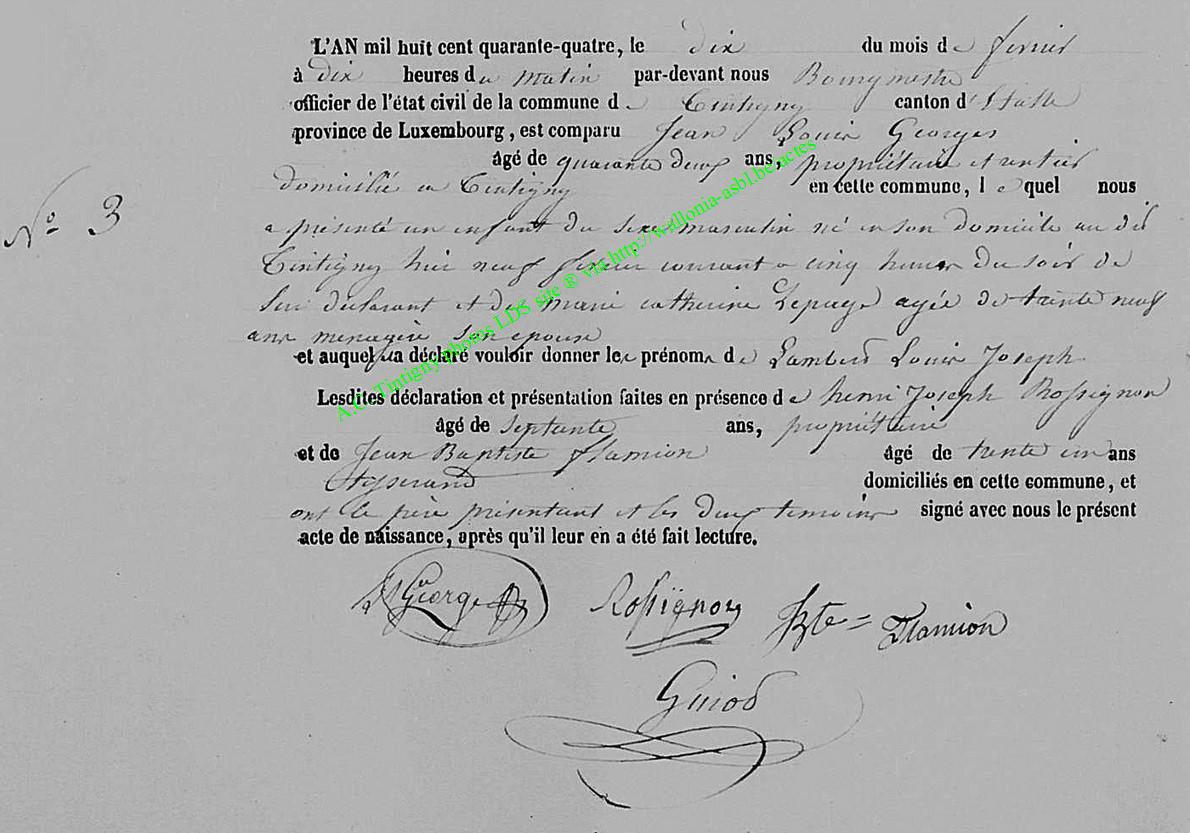 L'AN mil huit cent quarante-quatre, le dix du mois de fevrier
à dix heures du matin par-devant nous Bourgmestre
officier de l'état civil de la commune de Tintigny canton d'Etalle
province de Luxembourg, est comparu Jean Louis Georges
âgé de quarante deux ans, propriétaire et rentier
domicilié a Tintigny en cette commune, lequel nous
N° 3
a présenté un enfant du sexe masculin né en son domicile au dit
Tintigny hier neuf fevrier courant a cinq heures du soir de
lui déclarant et de marie catherine Lepage agée de trente neuf
ans menagère son epouse
et auquel il a déclaré vouloir donner les prénoms de Lambert Louis Joseph
Lesdites déclaration et présentation faites en présence de henri Joseph Rossignon
âgé de septante ans, propriétaire
et de Jean Baptiste flamion âgé de trente un ans
tisserand domiciliés en cette commune, et
ont le père présentant et les deux temoins signé avec nous le présent
acte de naissance, après qu'il leur en a été fait lecture.
George Rossignon Bte = Flamion
Guiod
A.C. Tintigny photos LDS site ® via http://wallonia-asbl.be/actes